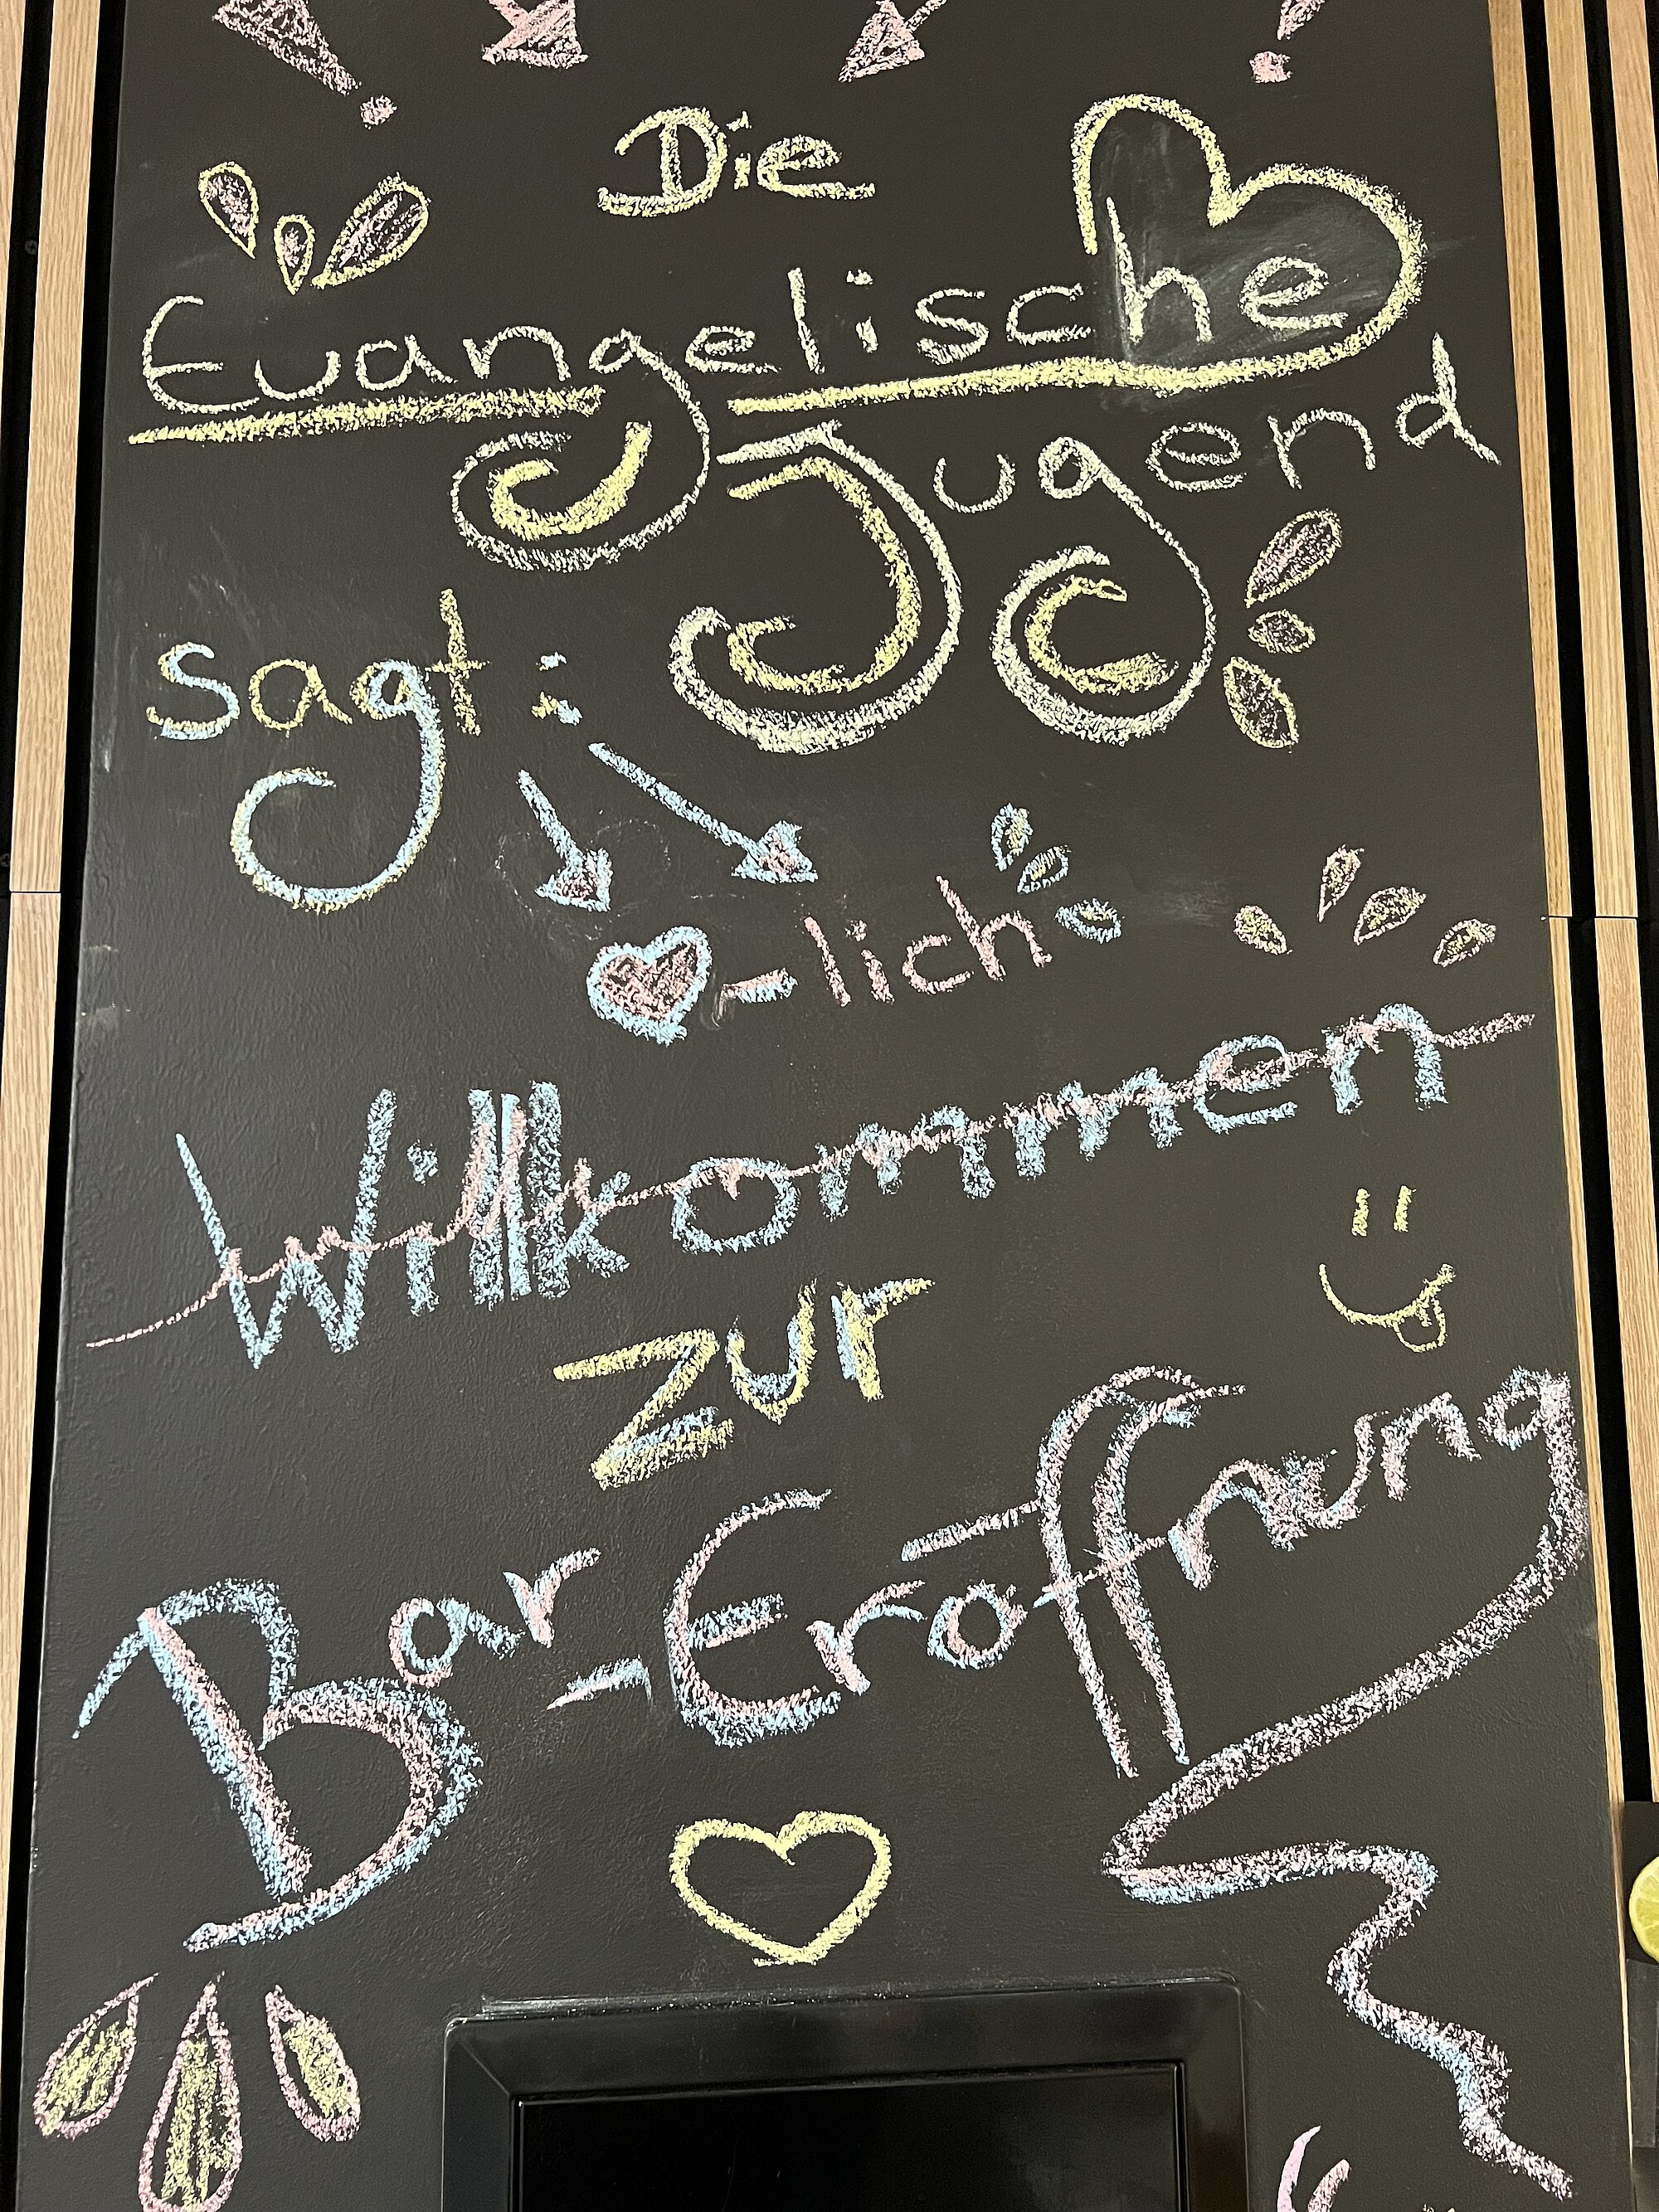 Die
Evangelische
Jugend
sagt:
♥-lich
Willkommen
zur
Bar-Eröffnung